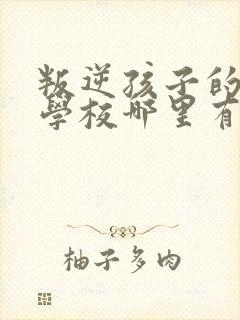 叛逆孩子的
學校哪里有
柚子多肉